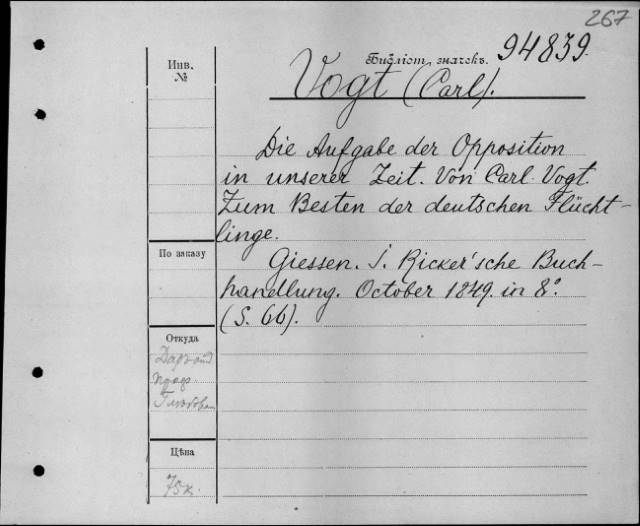 267
Инв.
№
Библіот. значекъ. 94839.
Vogt (Carl).
Die Aufgabe der Opposition
in unserer Zeit. Von Carl Vogt.
Zum Besten der deutschen Flücht-
linge.
По заказу
Giessen. J. Ricker'sche Buch-
handlung. October 1849. in 8°.
(S. 66).
Откуда
Цѣна
75к.